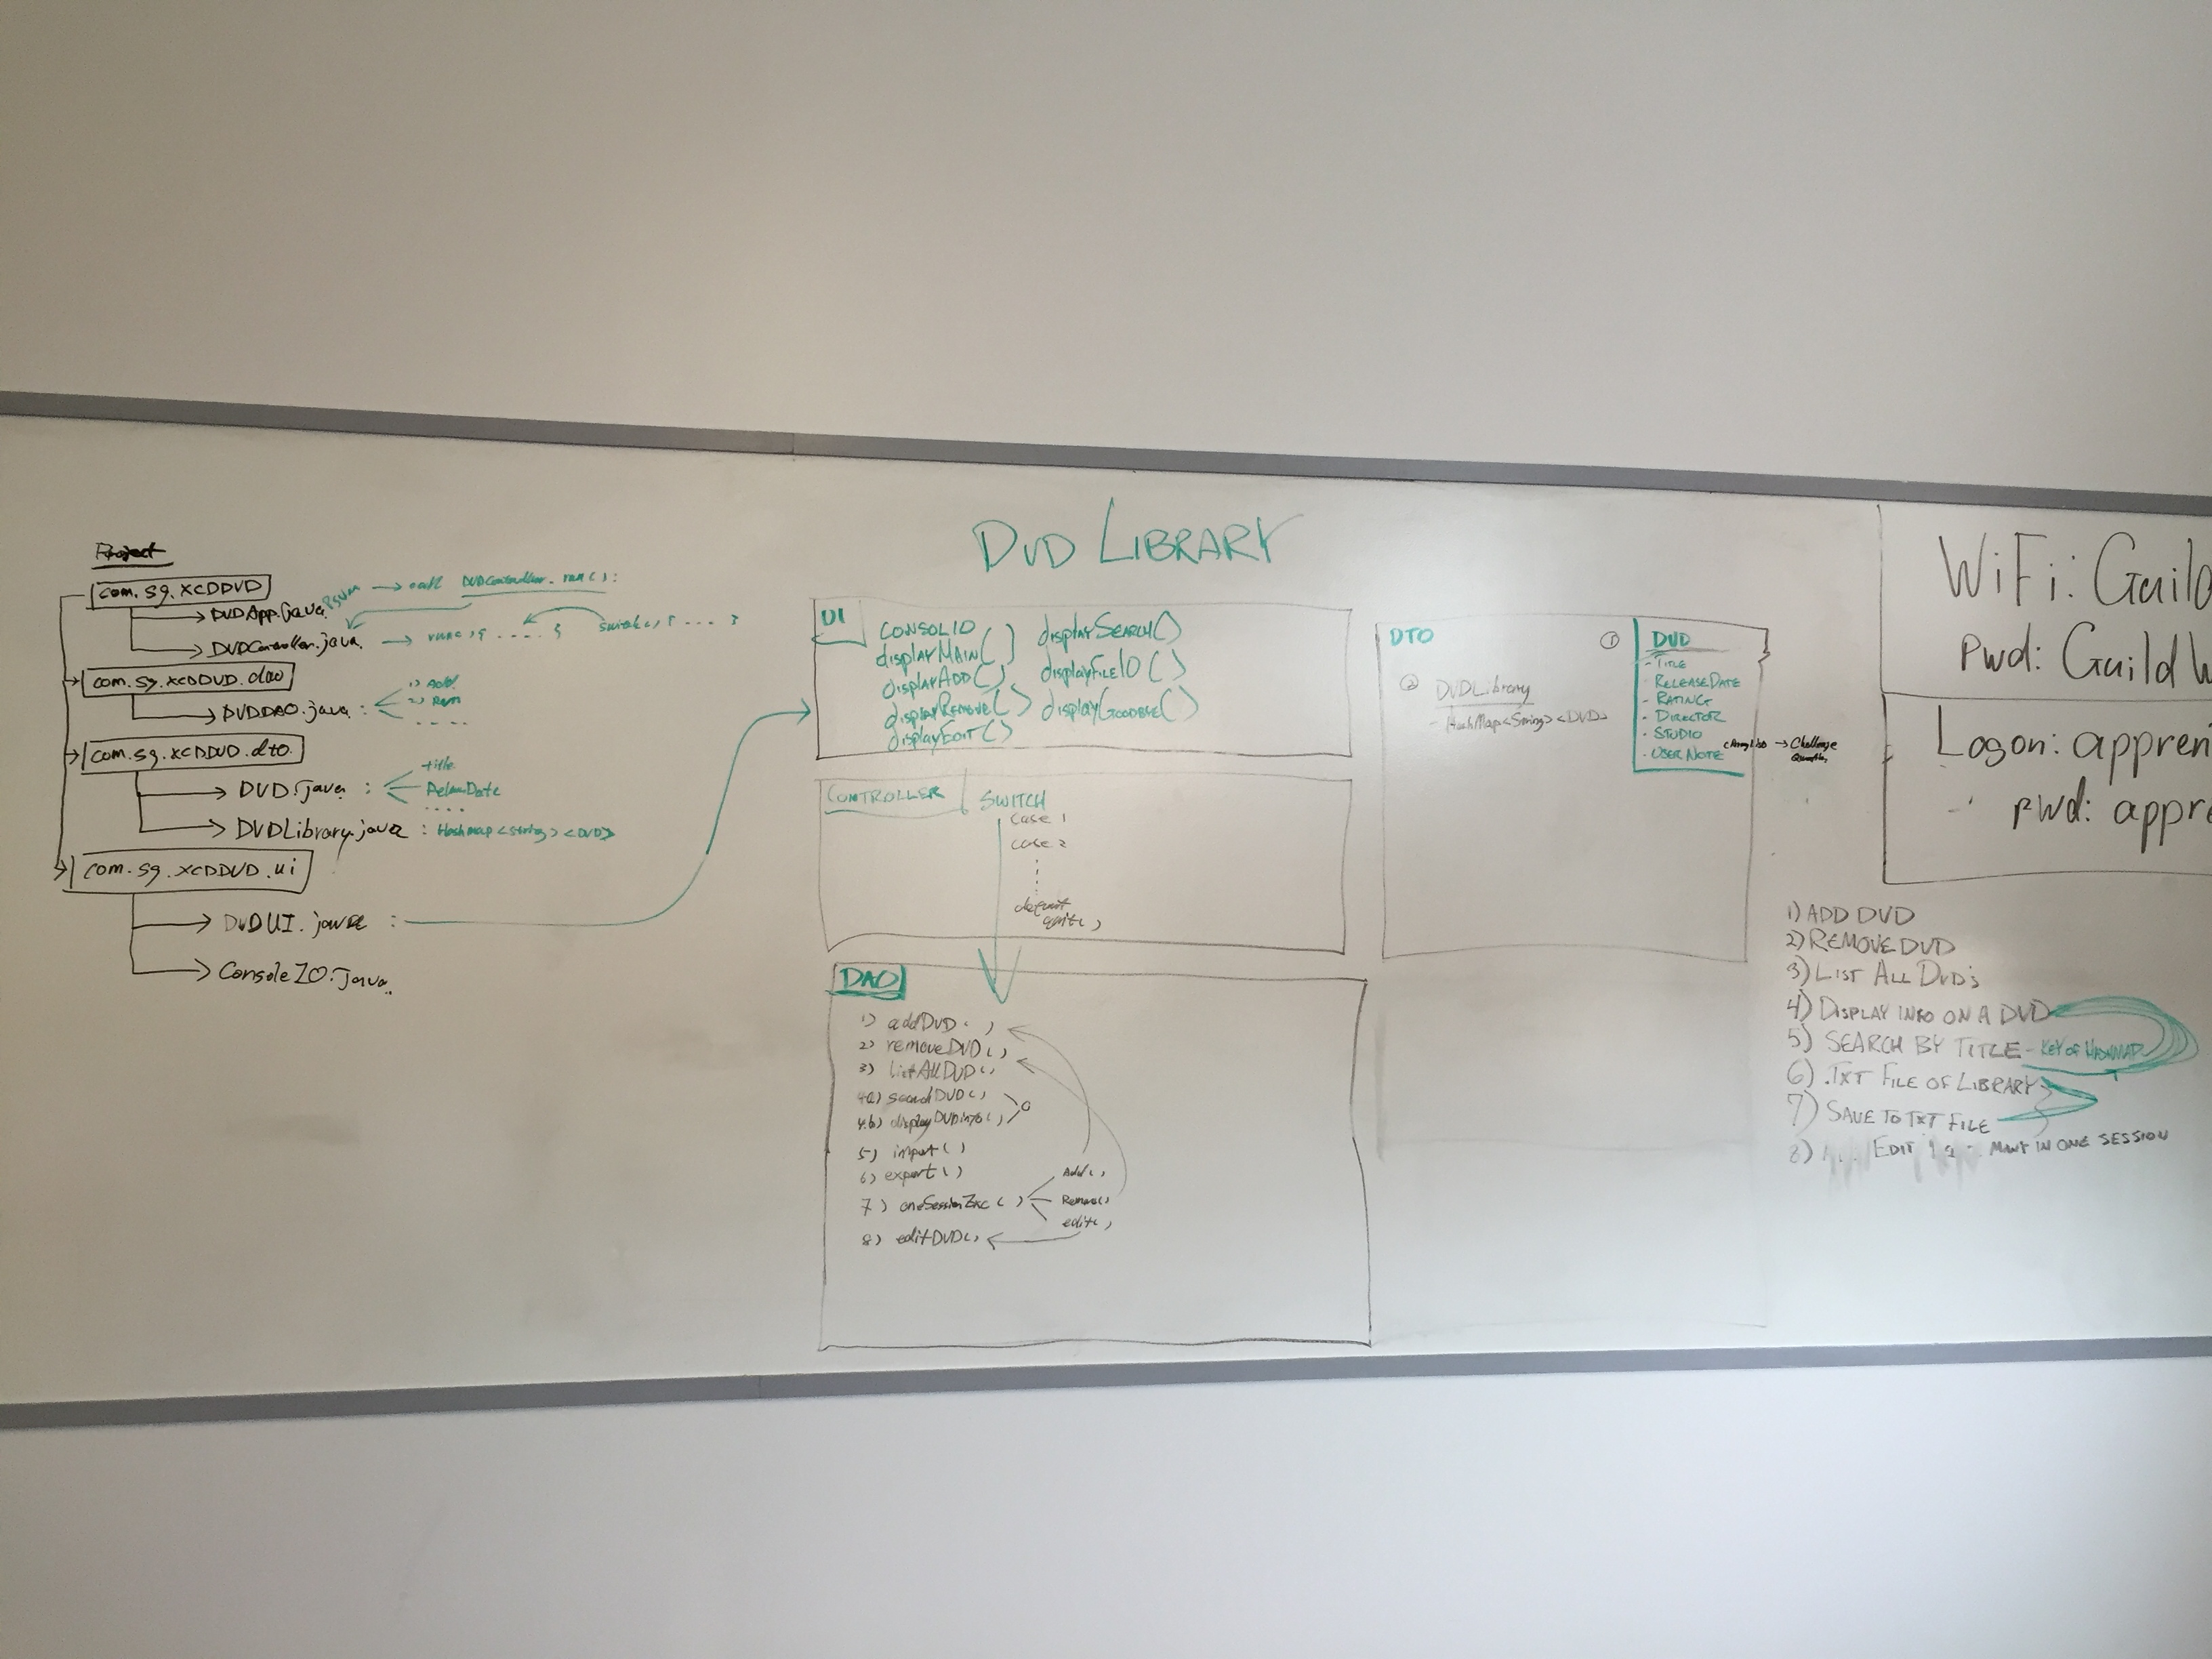 DVD LIBRARY
Project
com.sg.XCDDVD
DVDApp.java
psvm → call DVDController.run();
DVDController.java → run(){ ..... } switch(){ .... }
com.sg.XCDDVD.dao
DVDDAO.java :
1) Add
2) Rem
.....
com.sg.XCDDVD.dto.
DVD.java :
title
ReleaDate
.....
DVDLibrary.java : Hashmap<string><DVD>
com.sg.XCDDVD.ui
DVDUI.java :
ConsoleIO.java
UI
CONSOLIO
displayMAIN()
displayADD()
displayREMOVE()
displayEDIT()
displaySEARCH()
displayFILEIO()
displayGOODBYE()
CONTROLLER
SWITCH
case 1
case 2
default
quit()
DAO
1) addDVD()
2) removeDVD()
3) listAllDVD()
4a) searchDVD()
4.b) displayDVDinfo()
5) import()
6) export()
7) oneSession()
Add()
Remove()
edit()
8) editDVD()
DTO
① DVD
- TITLE
- RELEASEDATE
- RATING
- DIRECTOR
- STUDIO
- USER NOTE → Challenge
② DVDLibrary
- HashMap<String><DVD>
WiFi: Guild
Pwd: GuildW
Logon: appren
pwd: appre
1) ADD DVD
2) REMOVE DVD
3) LIST ALL DVD's
4) DISPLAY INFO ON A DVD
5) SEARCH BY TITLE - KEY OF HASHMAP
6) .TXT FILE OF LIBRARY
7) SAVE TO TXT FILE
8) EDIT MANY IN ONE SESSION